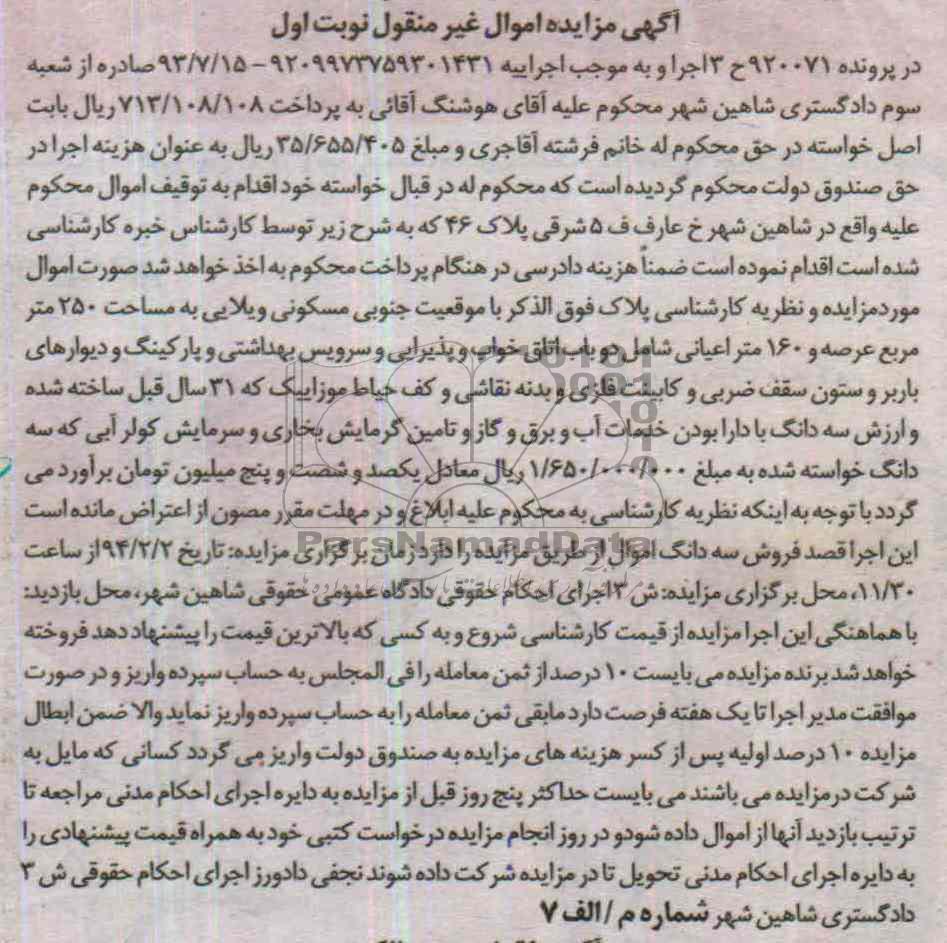 آگهی مزایده اموال غیر منقول نوبت اول
در پرونده ۹۲۰۰۷۱ح ۳ اجرا و به موجب اجراییه ۹۲۰۹۹۷۳۷۵۹۳۰۱۴۳۱ – ۹۳/۷/۱۵ صادره از شعبه
سوم دادگستری شاهین شهر محکوم علیه آقای هوشنگ آقائی به پرداخت ۷۱۳/۱۰۸/۱۰۸ ریال بابت
اصل خواسته در حق محکوم له خانم فرشته آقاجری و مبلغ ۳۵/۶۵۵/۴۰۵ ریال به عنوان هزینه اجرا در
حق صندوق دولت محکوم گردیده است که محکوم له در قبال خواسته خود اقدام به توقیف اموال محکوم
علیه واقع در شاهین شهر خ عارف ف ۵ شرقی پلاک ۴۶ که به شرح زیر توسط کارشناس خبره کارشناسی
شده است اقدام نموده است ضمناً هزینه دادرسی در هنگام پرداخت محکوم به اخذ خواهد شد صورت اموال
موردمزایده و نظریه کارشناسی پلاک فوق الذکر با موقعیت جنوبی مسکونی ویلایی به مساحت ۲۵۰ متر
مربع عرصه و ۱۶۰ متر اعیانی شامل دو باب اتاق خواب و پذیرایی و سرویس بهداشتی و پارکینگ و دیوارهای
باربر و ستون سقف ضربی و کابینت فلزی و بدنه نقاشی و کف حیاط موزاییک که ۳۱ سال قبل ساخته شده
و ارزش سه دانگ با دارا بودن خدمات آب و برق و گاز و تامین گرمایش بخاری و سرمایش کولر آبی که سه
دانگ خواسته شده به مبلغ ۱/۶۵۰/۰۰۰/۰۰۰ ریال معادل یکصد و شصت و پنج میلیون تومان برآورد می
گردد با توجه به اینکه نظریه کارشناسی به محکوم علیه ابلاغ و در مهلت مقرر مصون از اعتراض مانده است
این اجرا قصد فروش سه دانگ اموال از طریق مزایده را دارد زمان برگزاری مزایده: تاریخ ۹۴/۲/۲ از ساعت
۱۱/۳۰، محل برگزاری مزایده: ش ۳ اجرای احکام حقوقی دادگاه عمومی حقوقی شاهین شهر، محل بازدید:
با هماهنگی این اجرا مزایده از قیمت کارشناسی شروع و به کسی که بالاترین قیمت را پیشنهاد دهد فروخته
خواهد شد برنده مزایده می بایست ۱۰ درصد از ثمن معامله را فی المجلس به حساب سپرده واریز و در صورت
موافقت مدیر اجرا تا یک هفته فرصت دارد مابقی ثمن معامله را به حساب سپرده واریز نماید والا ضمن ابطال
مزایده ۱۰ درصد اولیه پس از کسر هزینه های مزایده به صندوق دولت واریز می گردد کسانی که مایل به
شرکت در مزایده می باشند می بایست حداکثر پنج روز قبل از مزایده به دایره اجرای احکام مدنی مراجعه تا
ترتیب بازدید آنها از اموال داده شود و در روز انجام مزایده درخواست کتبی خود به همراه قیمت پیشنهادی را
به دایره اجرای احکام مدنی تحویل تا در مزایده شرکت داده شوند نجفی دادورز اجرای احکام حقوقی ش ۳
دادگستری شاهین شهر شماره م / الف ۷
ParsNamadData